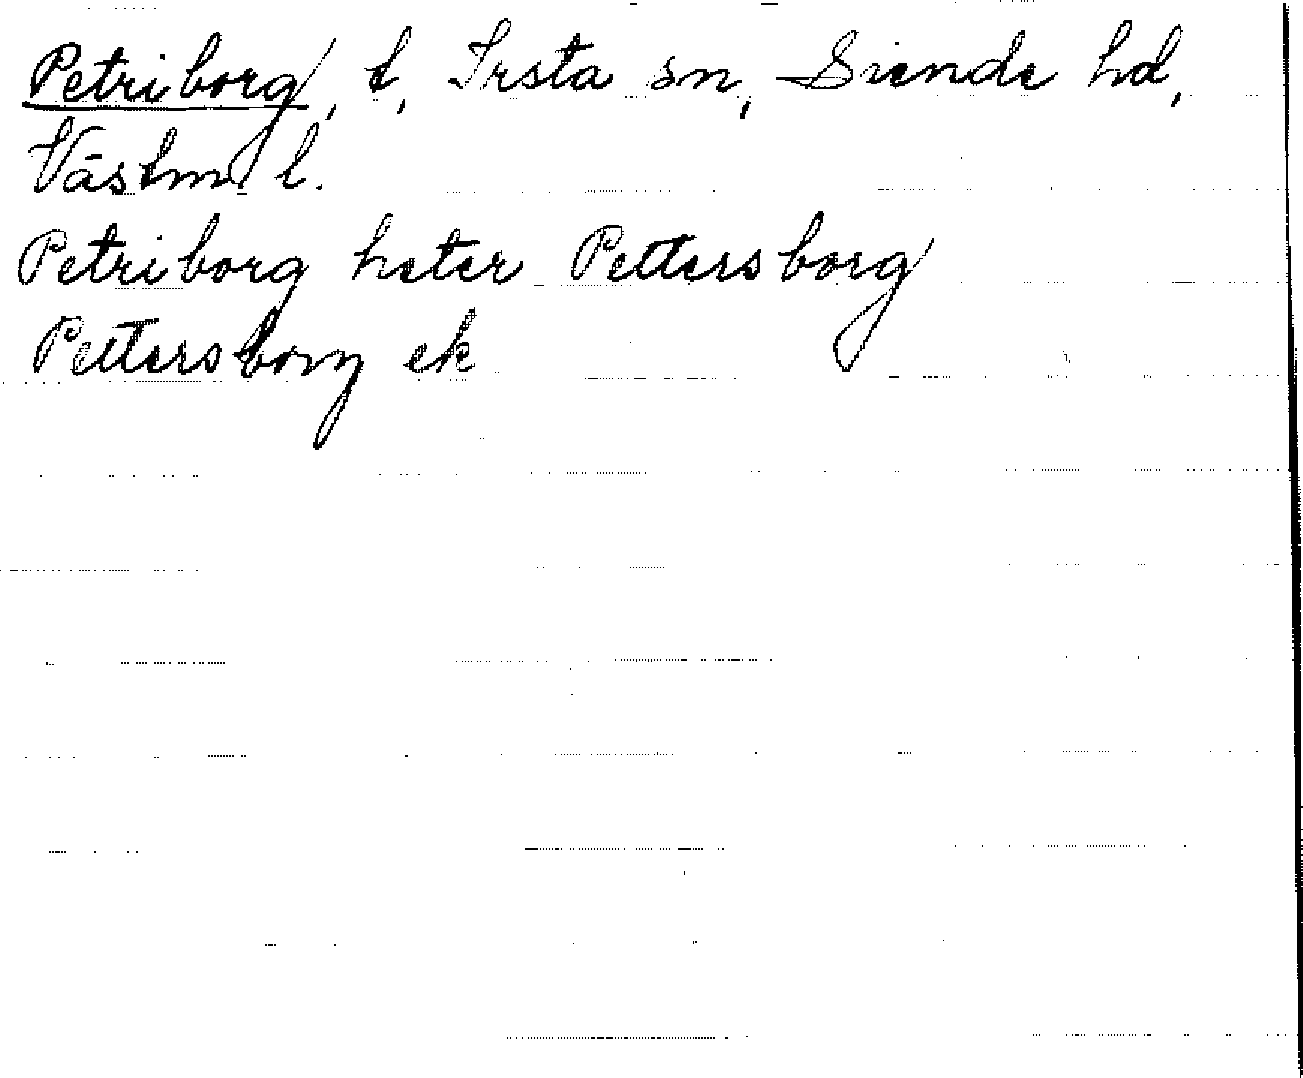 Petriborg, t, Irsta sn, Siende hd,
Västm. l.
Petriborg heter Pettersborg
Pettersborg ek